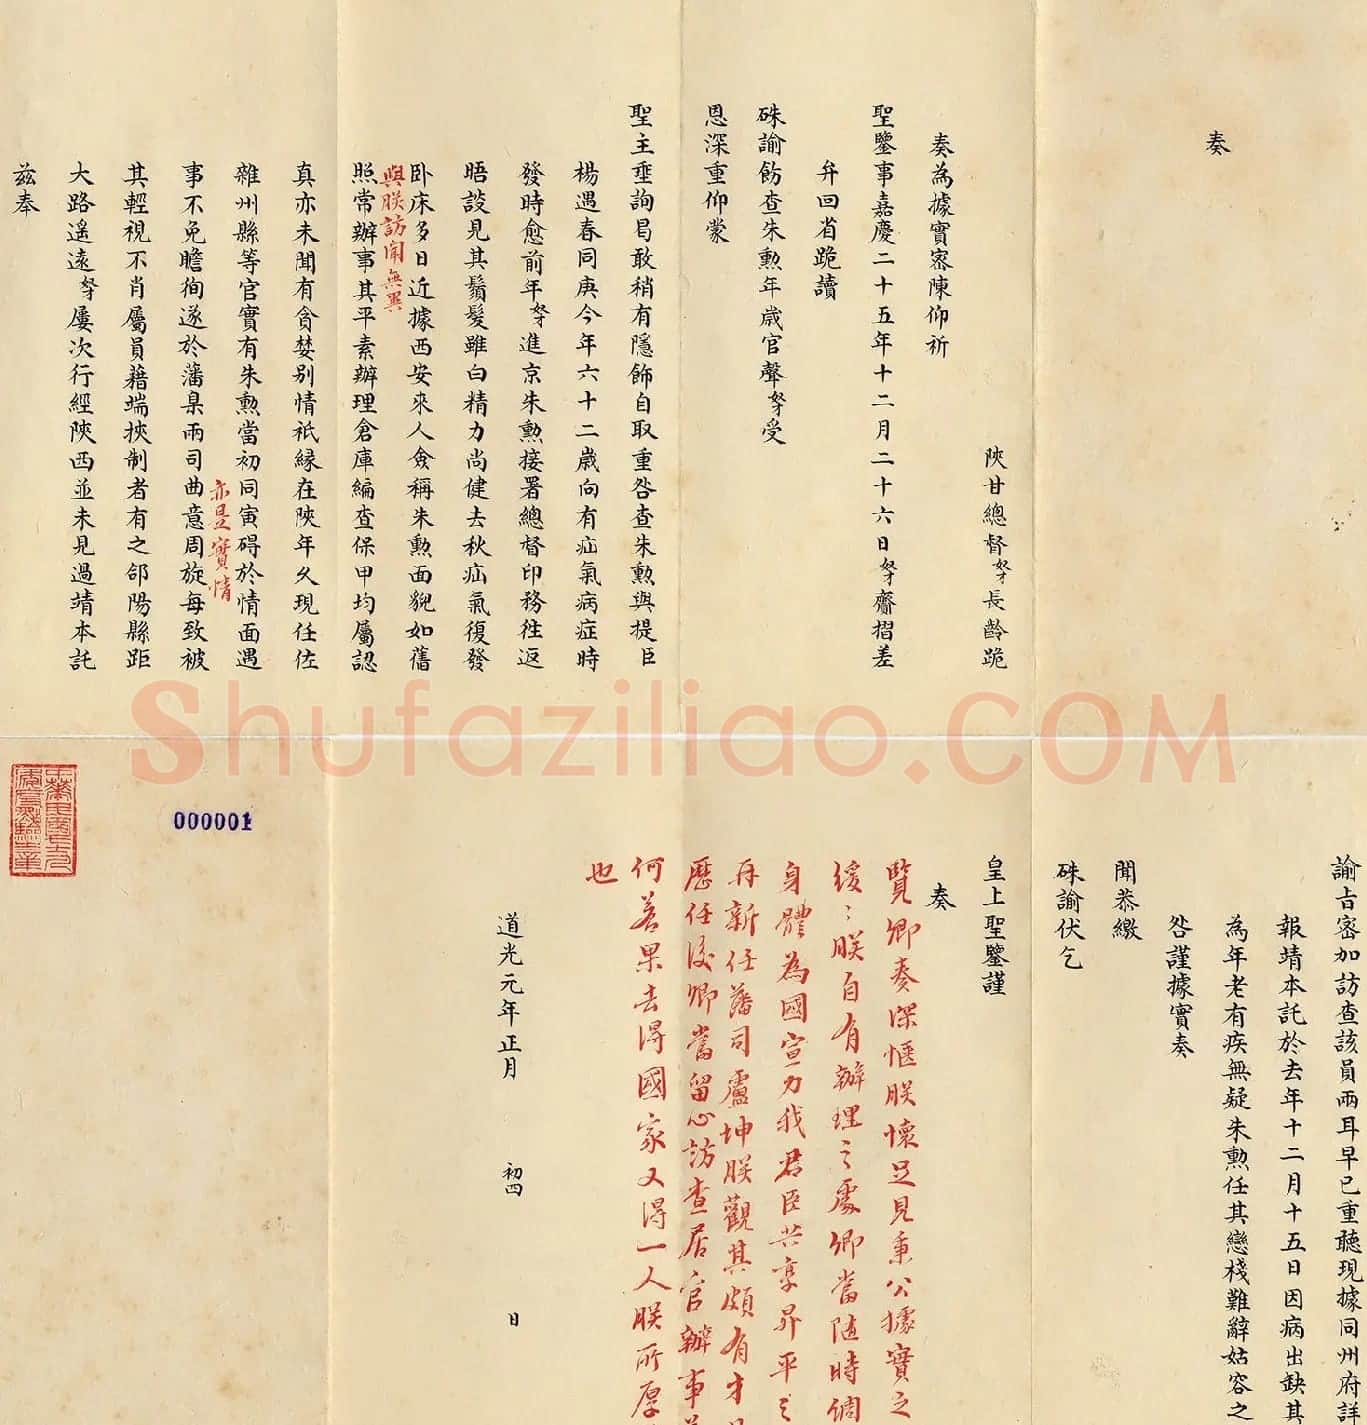 奏
陝甘總督奴才長齡跪
奏為據實密陳仰祈
聖鑒事嘉慶二十五年十二月二十六日奴才齎摺差
弁回省跪讀
硃諭飭查朱勳年歲官聲奴才受
恩深重仰蒙
聖主垂詢曷敢稍有隱飾自取重咎查朱勳與提臣
楊遇春同庚今年六十二歲向有疝氣病症時
發時愈前年奴才進京朱勳接署總督印務往返
晤談見其鬚髮雖白精力尚健去秋疝氣復發
卧床多日近據西安來人僉稱朱勳面貌如舊
與朕訪聞無異
照常辦事其平素辦理倉庫編查保甲均屬認
真亦未聞有貪婪別情祇緣在陝年久現任佐
雜州縣等官實有朱勳當初同寅碍於情面遇
亦是實情
事不免瞻徇遂於藩臬兩司曲意周旋每致被
其輕視不肖屬員藉端挾制者有之郃陽縣距
大路遙遠奴才屢次行經陝西並未見過靖本託
茲奉
諭旨密加訪查該員兩耳早已重聽現據同州府詳
報靖本託於去年十二月十五日因病出缺其
為年老有疾無疑朱勳任其戀棧難辭姑容之
咎謹據實奏
聞恭繳
硃諭伏乞
皇上聖鑒謹
奏
覽卿奏深愜朕懷足見秉公據實之
後朕自有辦理之處卿當隨時調
身體為國宣力我君臣共享昇平之
再新任藩司盧坤朕觀其頗有才
歷任後卿當留心訪查居官辦事
何若果去得國家又得一人朕所厚
也
道光元年正月初四日
000001
Shufaziliao.COM